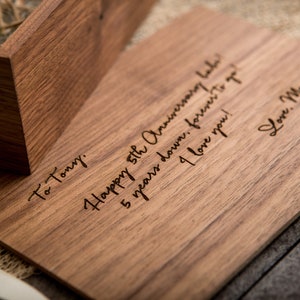 To Tony,
Happy 5th Anniversary babe!
5 years down, forever to go!
I love you!
Love M